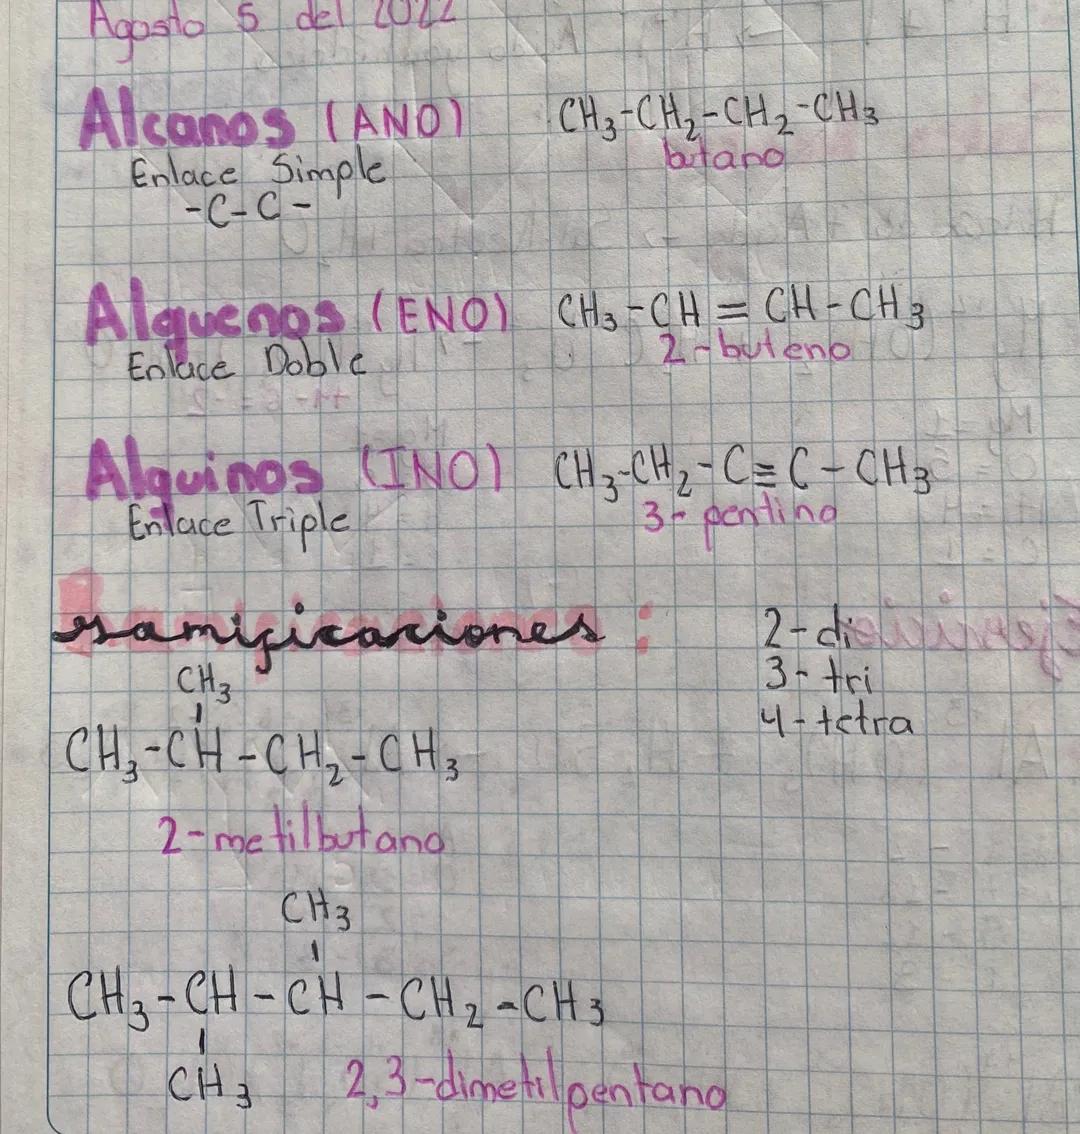 Agosto 5 del 2022
Alcanos (ANO) CH₃-CH₂-CH₂-CH₃
Enlace Simple butano
-C-C-
Alquenos (ENO) CH₃-CH=CH-CH₃
Enlace Doble 2-buteno
Alquinos (INO) CH₃-CH₂-C≡C-CH₃
Enlace Triple 3-pentino
ramificaciones:
2-di
3-tri
4-tetra
CH₃
CH₃-CH-CH₂-CH₃
2-metilbutano
CH₃
CH₃-CH-CH-CH₂-CH₃
CH₃ 2,3-dimetilpentano